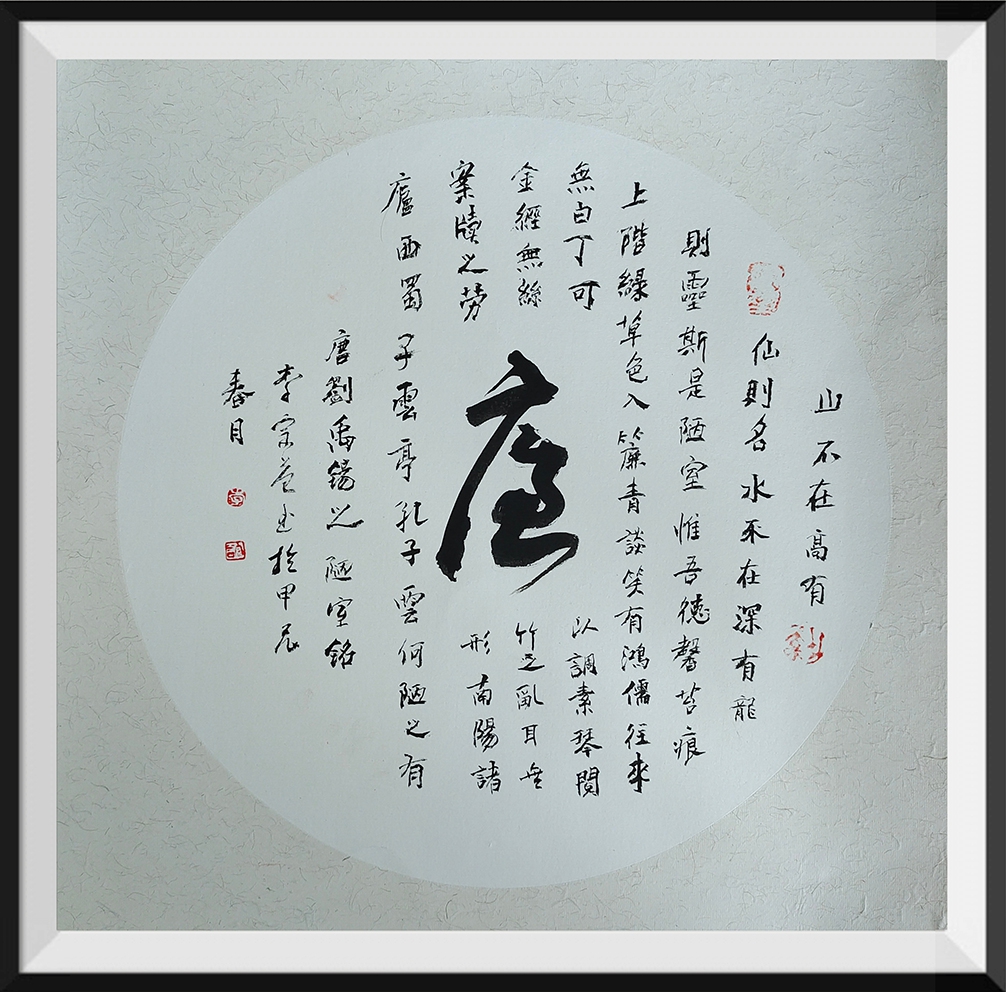 山不在高有
仙則名水不在深有龍
則靈斯是陋室惟吾德馨苔痕
上階綠草色入簾青談笑有鴻儒往來
無白丁可以調素琴閱
金經無絲竹之亂耳無
案牘之勞形南陽諸
廬西蜀子雲亭孔子雲何陋之有
唐劉禹錫之陋室銘
李宗書於甲辰
春月